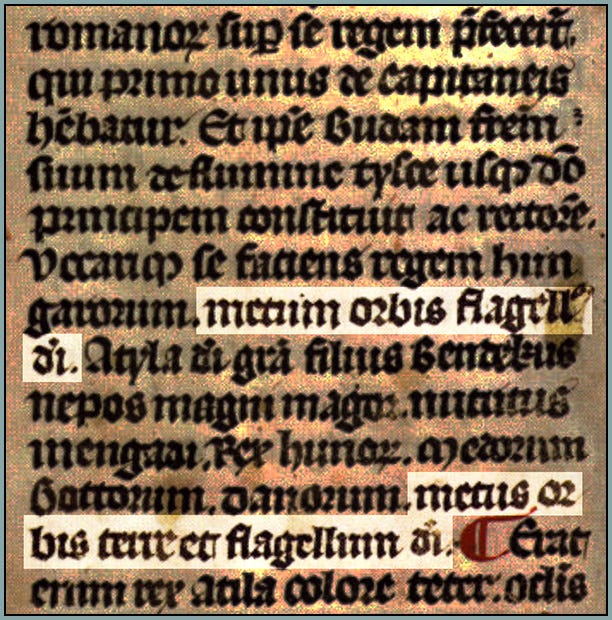 romanoꝝ suꝑ se regem p̄fecert̄.
qui primo unus de capitaneis
hēbatur. Et ip̄e Budam frem̄
suum de flumine tysce usqꝫ dō
principem constituit ac rectorē.
Vocariqꝫ se faciens regem hun
garorum. metum orbis flagellꝰ
dī. Atyla dī grā filius Bendekus
nepos magni magoꝝ. nutritus
in engadi. Rex hunoꝝ. Medorum
Gottorum. danorum. metus or
bis terre et flagellum dī. Erat
enim rex atila colore teter. oclis